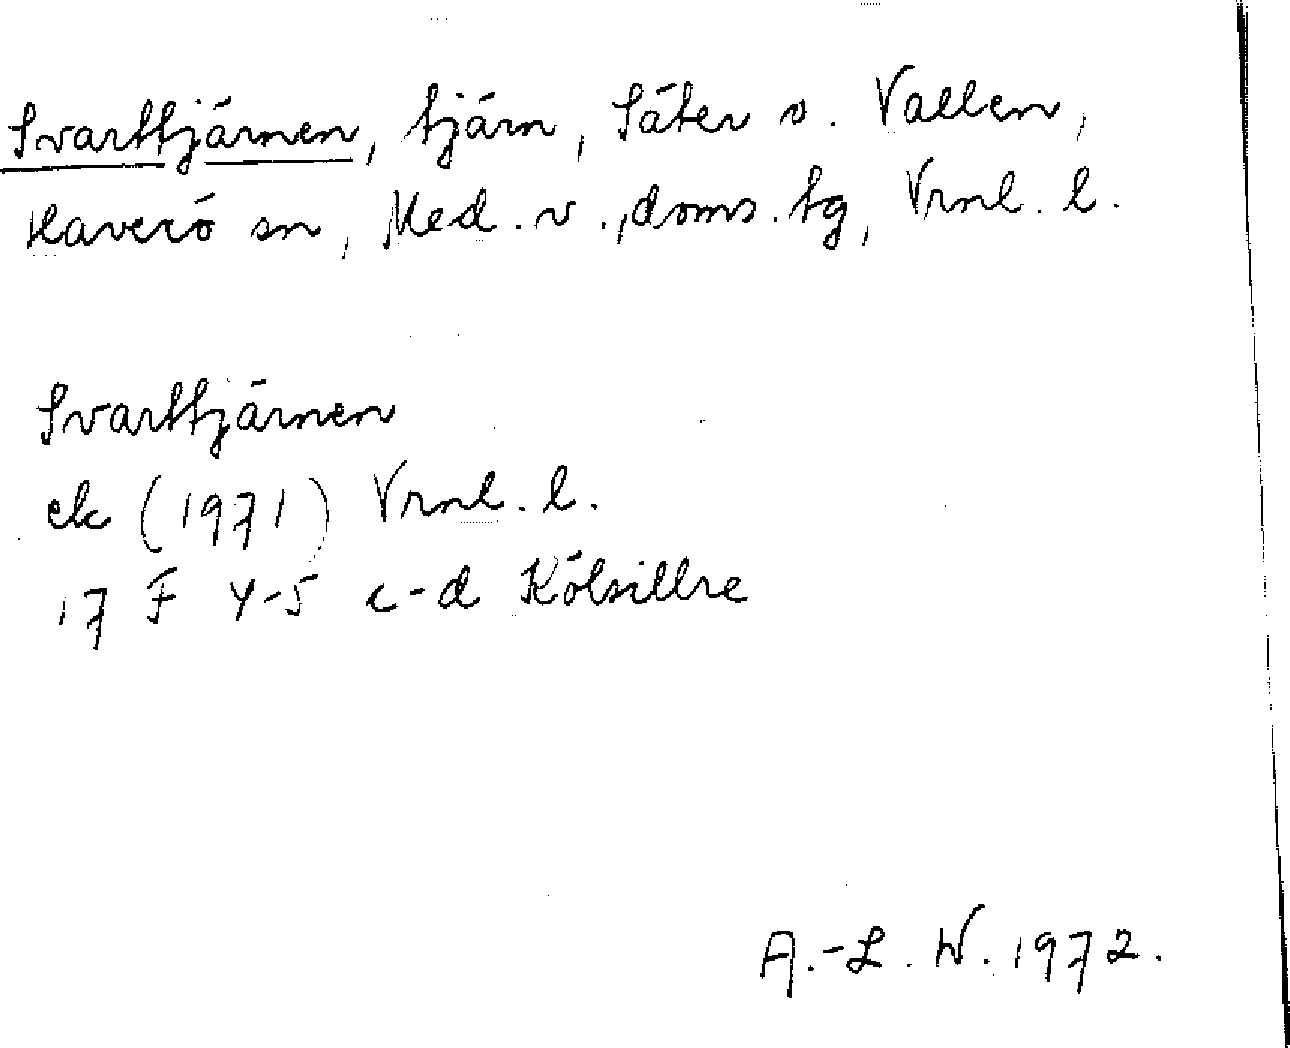 Svarttjärnen, tjärn, Säter s. Vallen,
Haverö sn, Med. v., doms. tg, Vrnl. l.
Svarttjärnen
ek (1971) Vrnl. l.
17 F 4-5 c-d Kölsillre
A.-L. W. 1972.